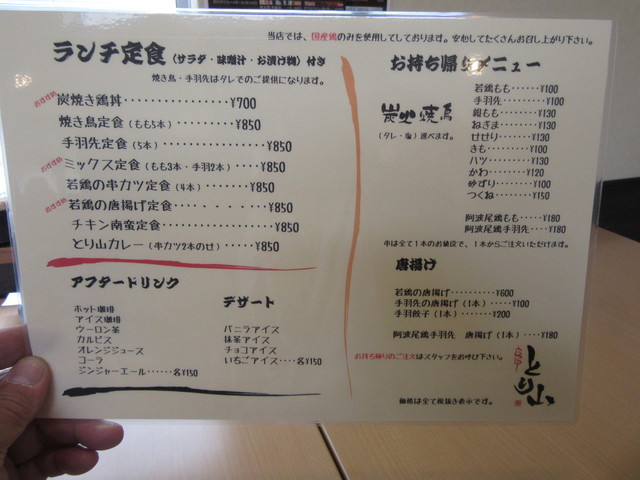 当店では、国産鶏のみを使用してしております。安心してたくさんお召し上がり下さい。
ランチ定食（サラダ・味噌汁・お漬け物）付き
焼き鳥・手羽先はタレでのご提供になります。
おすすめ 炭焼き鶏丼・・・・・・・・・・・・・・¥700
焼き鳥定食（もも5本）・・・・・・・・¥850
手羽先定食（5本）・・・・・・・・・・・・・¥850
おすすめ ミックス定食（もも3本・手羽2本）・・・・¥850
若鶏の串カツ定食（4本）・・・・・・・¥850
おすすめ 若鶏の唐揚げ定食・・・・・・・・¥850
チキン南蛮定食・・・・・・・・・・・¥850
とり山カレー（串カツ2本のせ）・・・・・¥850
アフタードリンク
ホット珈琲
アイス珈琲
ウーロン茶
カルピス
オレンジジュース
コーラ
ジンジャーエール・・・・・・各¥150
デザート
バニラアイス
抹茶アイス
チョコアイス
いちごアイス・・・・各¥150
お持ち帰りメニュー
炭火焼鳥
（タレ・塩）選べます。
若鶏もも・・・・・・¥100
手羽先・・・・・・・・¥100
親もも・・・・・・・・¥130
ねぎま・・・・・・・・¥130
せせり・・・・・・・・¥130
きも・・・・・・・・・・¥100
ハツ・・・・・・・・・・¥130
かわ・・・・・・・・・・¥120
砂ずり・・・・・・・・¥100
つくね・・・・・・・・¥150
阿波尾鶏もも・・・・¥180
阿波尾鶏手羽先・・・¥180
串は全て1本のお値段で、1本からご注文いただけます。
唐揚げ
若鶏の唐揚げ・・・・・・・・・・¥600
手羽先の唐揚げ（1本）・・・・・¥100
手羽餃子（1本）・・・・・・・・¥200
阿波尾鶏手羽先 唐揚げ（1本）・・・・¥180
お持ち帰りのご注文はスタッフをお呼び下さい。
とり山
価格は全て税抜き表示です。